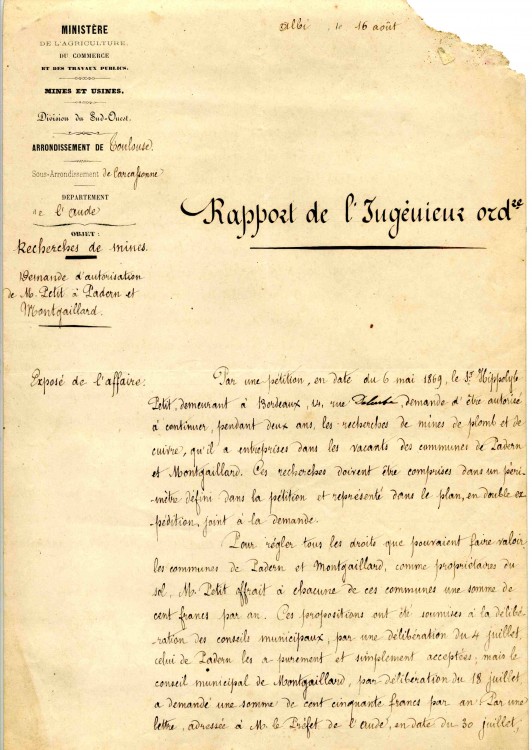 MINISTÈRE
DE L'AGRICULTURE,
DU COMMERCE
ET DES TRAVAUX PUBLICS.
MINES ET USINES.
Division du Sud-Ouest.
ARRONDISSEMENT DE Toulouse.
Sous-Arrondissement de Carcassonne
DÉPARTEMENT
de l'Aude
OBJET :
Recherches de mines.
Demande d'autorisation
de M. Petit à Padern et
Montgaillard.
Albi, le 16 août
Rapport de l'Ingénieur ordre
Exposé de l'affaire.
Par une pétition, en date du 6 mai 1869, le Sr Hippolyte
Petit, demeurant à Bordeaux, 14, rue , demande d'être autorisé
à continuer, pendant deux ans, les recherches de mines de plomb et de
cuivre, qu'il a entreprises dans les vacants des communes de Padern
et Montgaillard. Ces recherches doivent être comprises dans un péri-
mètre défini dans la pétition et représenté dans le plan, en double ex
pédition, joint à la demande.
Pour régler tous les droits que pouvaient faire valoir
les communes de Padern et Montgaillard, comme propriétaires du
sol, M. Petit offrait à chacune de ces communes une somme de
cent francs par an. Ces propositions ont été soumises à la délibé-
ration des conseils municipaux, par une délibération du 4 juillet,
celui de Padern les a purement et simplement acceptées; mais le
conseil municipal de Montgaillard, par délibération du 18 juillet
a demandé une somme de cent cinquante francs par an. Par une
lettre, adressée à M. le Préfet de l'Aude, en date du 30 juillet,